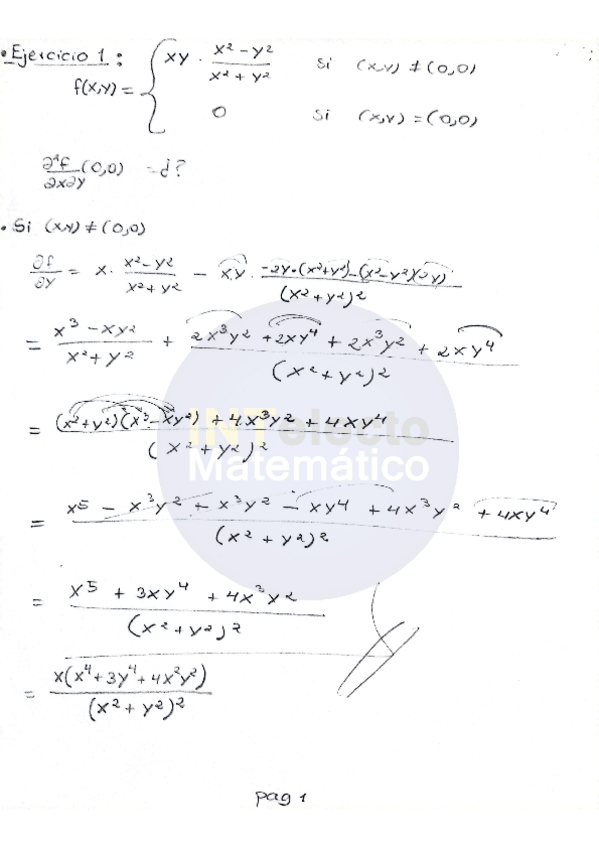 • Ejercicio 1 :
f(x,y) = { xy · (x² - y²)/(x² + y²) si (x,y) ≠ (0,0)
0 si (x,y) = (0,0)
∂²f/∂x∂y (0,0) = ¿?
• Si (x,y) ≠ (0,0)
∂f/∂y = x · (x² - y²)/(x² + y²) - xy · (-2y·(x²+y²) - (x²-y²)(2y))/(x²+y²)²
= (x³ - xy²)/(x² + y²) + (2x³y² + 2xy⁴ + 2x³y² + 2xy⁴)/(x² + y²)²
= ((x²+y²)(x³ - xy²) + 4x³y² + 4xy⁴)/(x² + y²)²
INTelecto
Matemático
= (x⁵ - x³y² + x³y² - xy⁴ + 4x³y² + 4xy⁴)/(x² + y²)²
= (x⁵ + 3xy⁴ + 4x³y²)/(x² + y²)²
= x(x⁴ + 3y⁴ + 4x²y²)/(x² + y²)²
pag 1